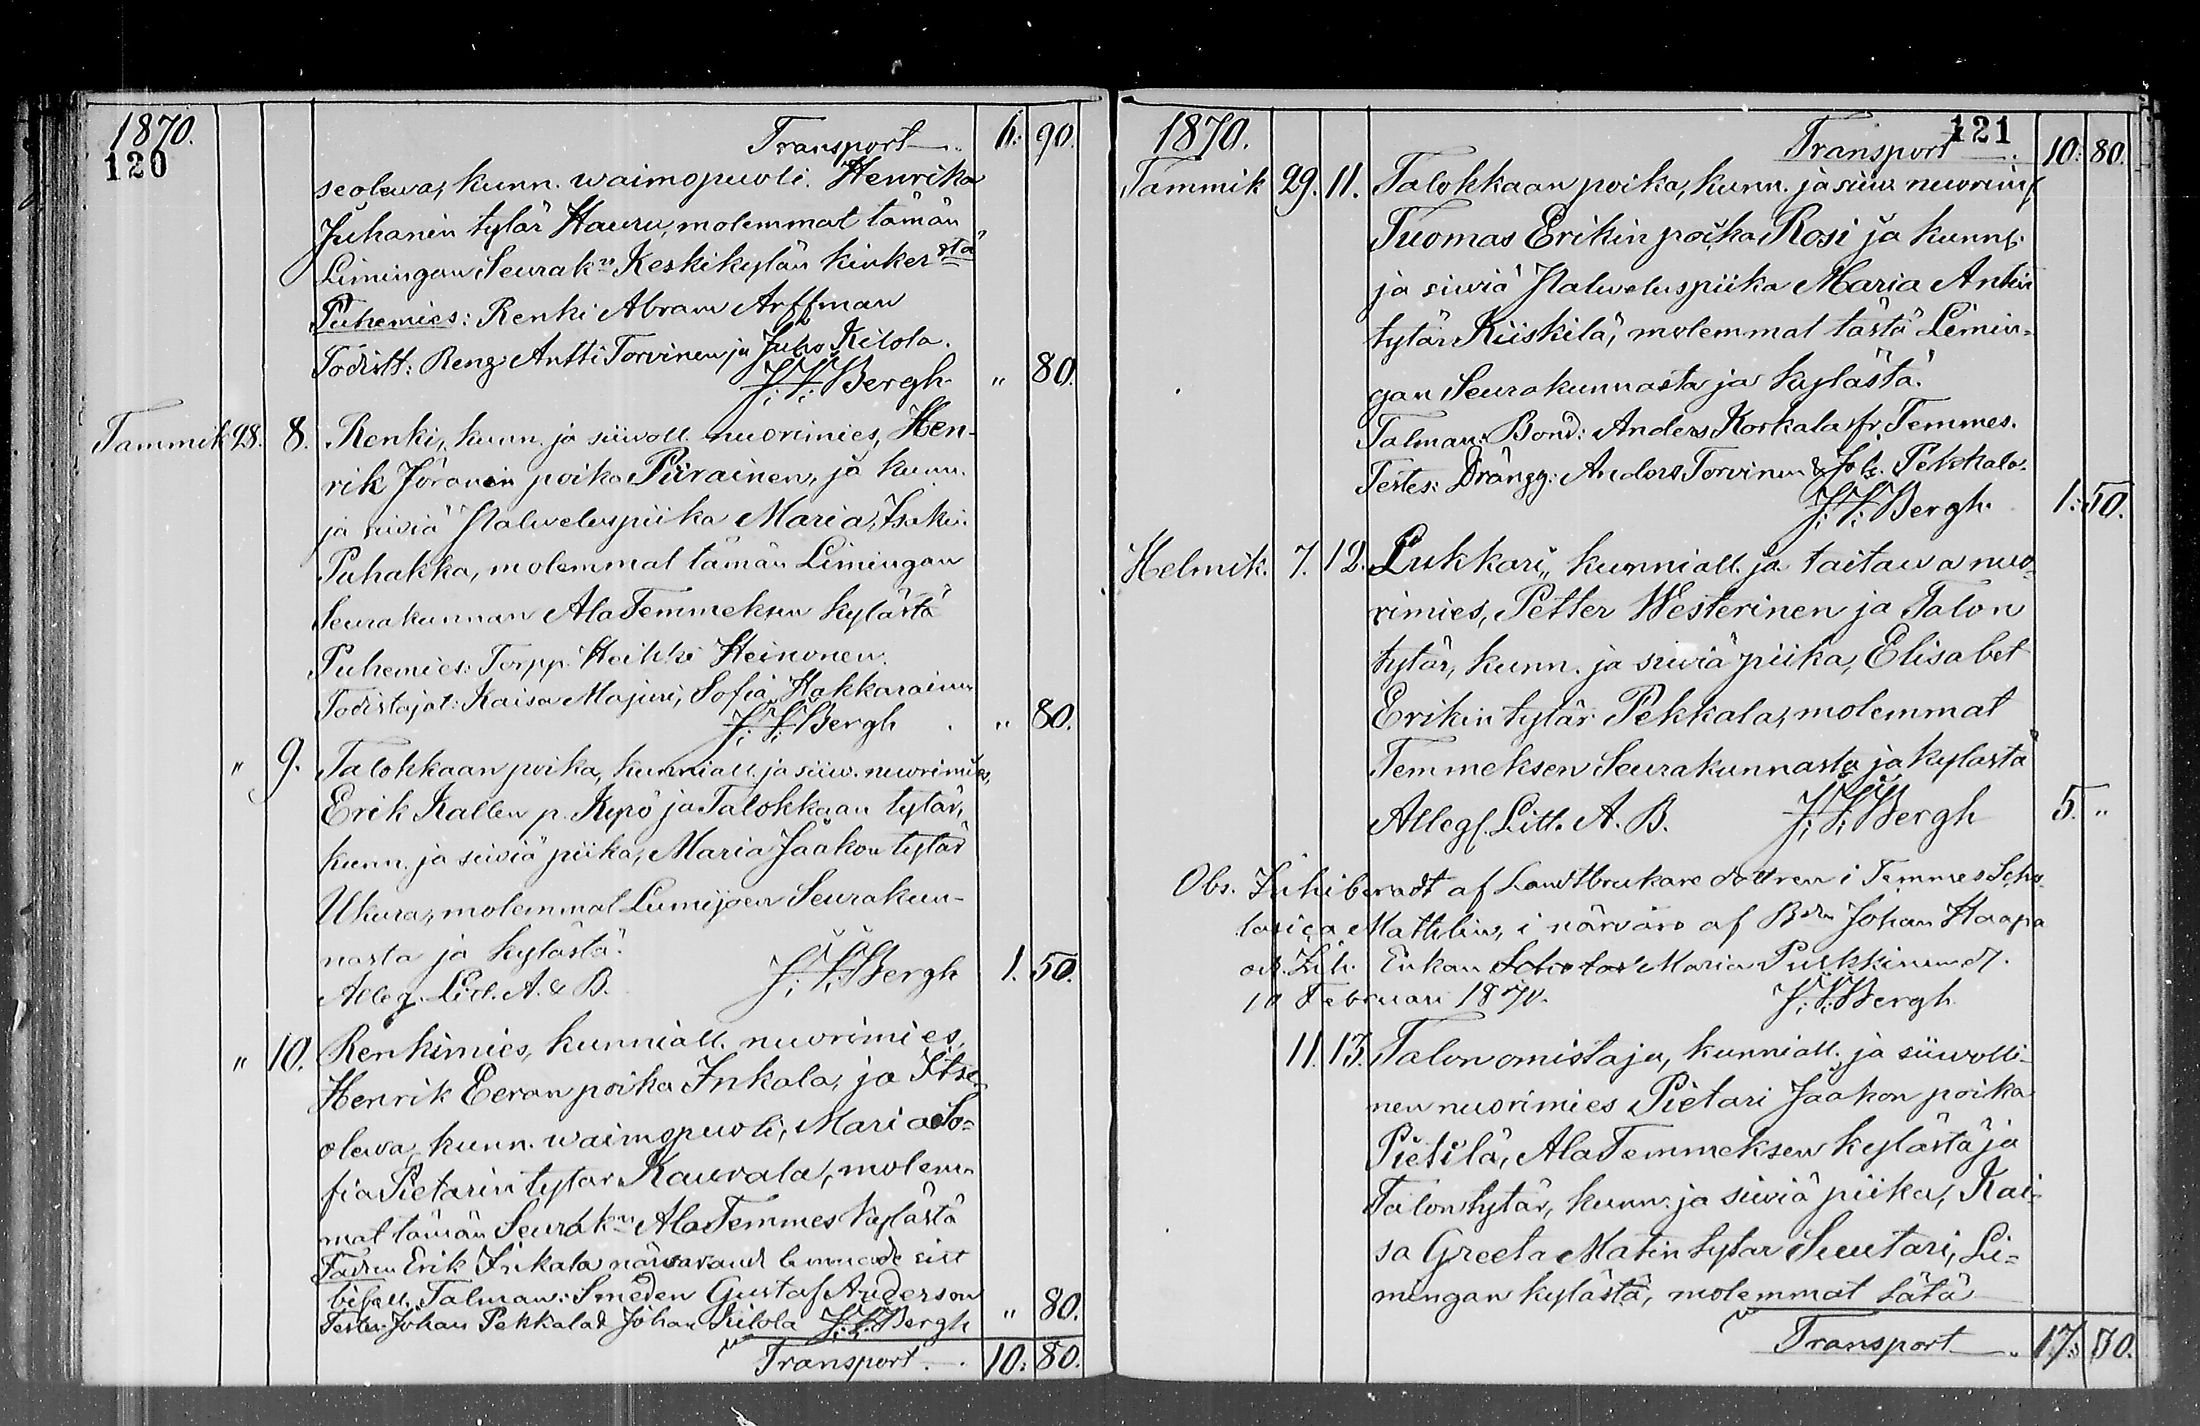 1870.
120
Transport 6: 90.
seolewa, kunn. waimopuoli. Henrika
Juhanin tytär Hauru, molemmat tämän
Limingan Seurakn Keskikylän kinkerstä
Puhemies: Renki Abram Arffman
Todistt: Reng: Antti Torvinen ja Juho Kilola.
J. V. Bergh. " 80.
Tammik 28. 8. Renki, kunn. ja siiwoll. nuorimies, Hen-
rik Jöranin poika Piirainen, ja kunn.
ja siwiä Palweluspiika Maria Isaki.
Puhakka, molemmat tämän Limingan
Seurakunnan AlaTemmeksen kylästä
Puhemies: Torpp. Heikki Heinonen.
Todistajat: Kaisa Majuri, Sofia Hakkarainen
J. V. Bergh " 80.
" 9. Talokkaan poika, kunniall. ja siiw. nuorimies,
Erik Kallen p. Kypö ja Talokkaan tytär,
kunn. ja siwiä piika, Maria Jaakon tytär
Ukura, molemmat Lumijoen Seurakun-
nasta ja kylästä.
Alleg. Litt. A. & B. J. V. Bergh 1. 50.
" 10. Renkimies, kunniall. nuorimies,
Henrik Eeran poika Inkala, ja Itse-
olewa, kunn. waimopuoli, Maria So-
fia Pietarin tytar Kauvala, molem-
mat tämän Seurakn AlaTemmes kylästä
Fadren Erik Inkala närvarand lemnade sitt
bifall. Talman: Smeden Gustaf Anderson
Testes: Johan Pekkala & Johan Kilola J. V. Bergh " 80.
Transport. 10: 80.
1870.
121
Transport 10: 80.
Tammik 29. 11. Talokkaan poika, kunn. ja siiw. nuorim.
Tuomas Erikin poika Rosi ja kunn.
ja siwiä Palweluspiika Maria Antin
tytär Kiiskilä, molemmat tästä Limin-
gan Seurakunnasta ja kylästä.
Talman: Bond: Anders Korkala fr. Temmes.
Testes: Drängg: Anders Torvinen & Joh. Pekkala.
J. V. Bergh. 1: 50.
Helmik. 7. 12. Lukkari, kunniall. ja taitawa nuo-
rimies, Petter Westerinen ja Talon
tytär, kunn. ja siwiä piika, Elisabet
Erikin tytär Pekkala, molemmat
Temmeksen Seurakunnasta ja kylasta
Alleg. Litt. A. B. J. V. Bergh 5. "
Obs. af Landtbrukare dottren i Temmes Scho-
lasica Mathlin, i närvaro af Bdn Johan Haapa
och Enkan Maria Pukkinen d.
10 Februari 1870. J. V. Bergh
11. 13. Talon omistaja, kunniall. ja siiwolli-
nen nuorimies Pietari Jaakon poika
Pietilä, AlaTemmeksen kylästä ja
Talon tytär, kunn. ja siwiä piika, Kai-
sa Greeta Matin tytar Suutari, Li-
mingan kylästä, molemmat tätä
Transport 17: 30.